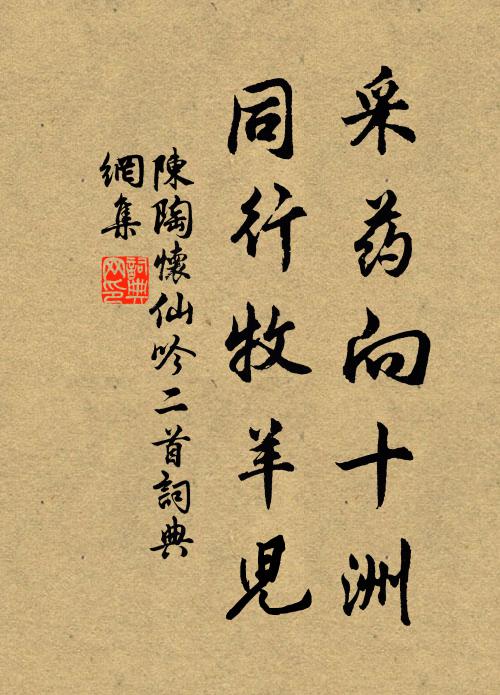 采药向十洲
同行牧羊児
陳陶懷仙吟二首詞典
網集
詞典
网印